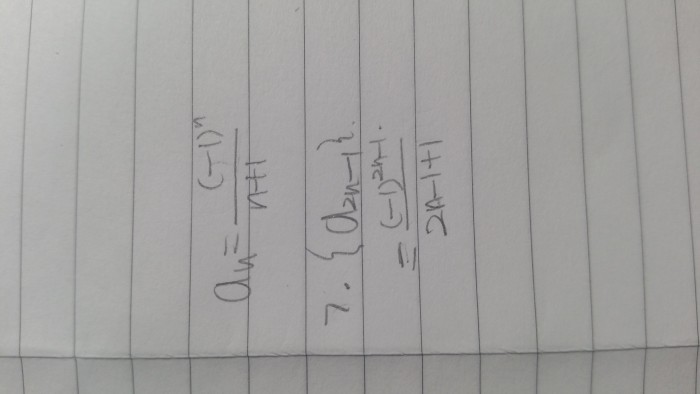 aₙ = (-1)ⁿ / n+1
7. {a₂ₙ₋₁}.
= (-1)²ⁿ⁻¹. / 2n-1+1